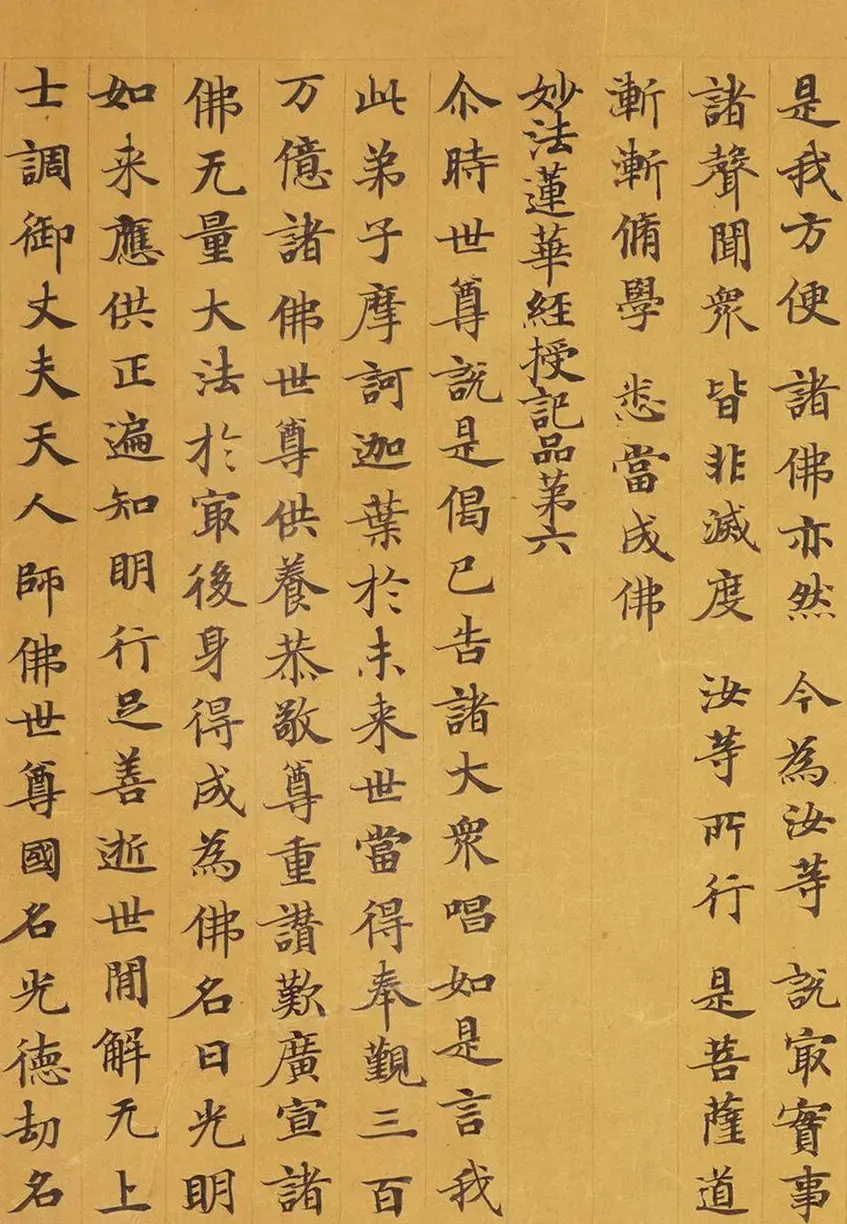 是我方便 諸佛亦然 今為汝等 說㝡實事
諸聲聞衆 皆非滅度 汝等所行 是菩薩道
漸漸脩學 悉當成佛
妙法蓮華經授記品第六
尒時世尊說是偈已告諸大衆唱如是言我
此弟子摩訶迦葉於未来世當得奉覲三百
万億諸佛世尊供養恭敬尊重讃歎廣宣諸
佛无量大法於㝡後身得成為佛名曰光明
如来應供正遍知明行足善逝世間解无上
士調御丈夫天人師佛世尊國名光德劫名